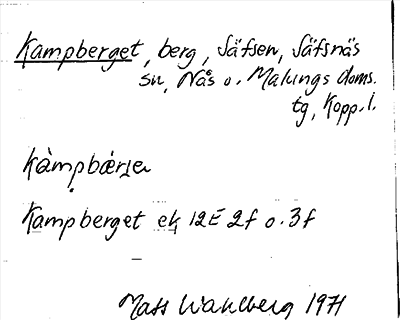 Kampberget, berg, Säfsen, Säfsnäs
sn, Nås o. Malungs doms.
tg, Kopp. l.
Kampberget ek 12E 2f o. 3f
Mats Wahlberg 1971